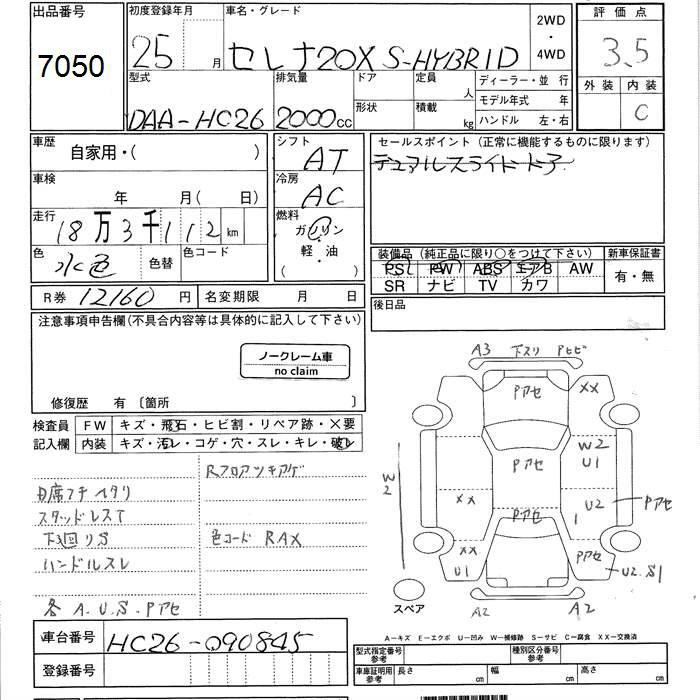 出品番号
7050
初度登録年月
25 月
車名・グレード
セレナ20X S-HYBRID
2WD
・
4WD
評価点
3.5
型式
DAA-HC26
排気量
2000cc
ドア
形状
定員
人
積載
kg
ディーラー・並行
モデル年式 年
ハンドル 左・右
外装 内装
C
車歴
自家用・( )
車検
年 月( 日)
走行
18万3千112km
色
水色
色替
色コード
シフト
AT
冷房
AC
燃料
ガソリン
軽・油
( ・ )
セールスポイント(正常に機能するものに限ります)
デュアルスライドドア
装備品(純正品に限り○をつけて下さい)
PS PW ABS エアB AW
SR ナビ TV カワ
新車保証書
有・無
R券 12160円
名変期限 月 日
後日品
注意事項申告欄(不具合内容等は具体的に記入して下さい)
ノークレーム車
no claim
修復歴 有〔箇所 〕
検査員
記入欄
FW キズ・飛石・ヒビ割・リペア跡・×要
内装 キズ・汚レ・コゲ・穴・スレ・キレ・破レ
Rフロアツキアゲ
スタッドレスT
下廻りS
色コード RAX
ハンドルスレ
各 A.U.S.Pアセ
A3 下スリ Pヒビ
Pアセ
XX
W2
U1
W2
Pアセ
XX
U2
Pアセ
Pアセ
XX
U1
Pアセ
U2.S1
スペア
A2
A2
A−キズ E−エクボ U−凹み W−補修跡 S−サビ C−腐食 XX−交換済
車台番号
HC26-090845
登録番号
型式指定番号
参考
種別区分番号
参考
車庫証明用
参考
長さ
幅
高さ